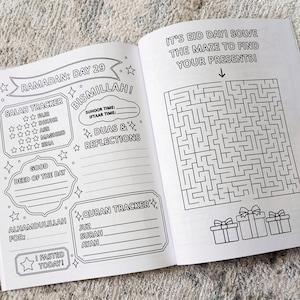 RAMADAN: DAY 29
BISMILLAH!
SALAH TRACKER
FAJR
DHUHR
ASR
MAGHRIB
ISHA
SUHOOR TIME:
IFTAAR TIME:
DUAS &
REFLECTIONS
GOOD
DEED OF THE DAY
ALHAMDULILLAH
FOR:
I FASTED
TODAY!
QURAN TRACKER
JUZ
SURAH
AYAH
IT'S EID DAY! SOLVE
THE MAZE TO FIND
YOUR PRESENTS!